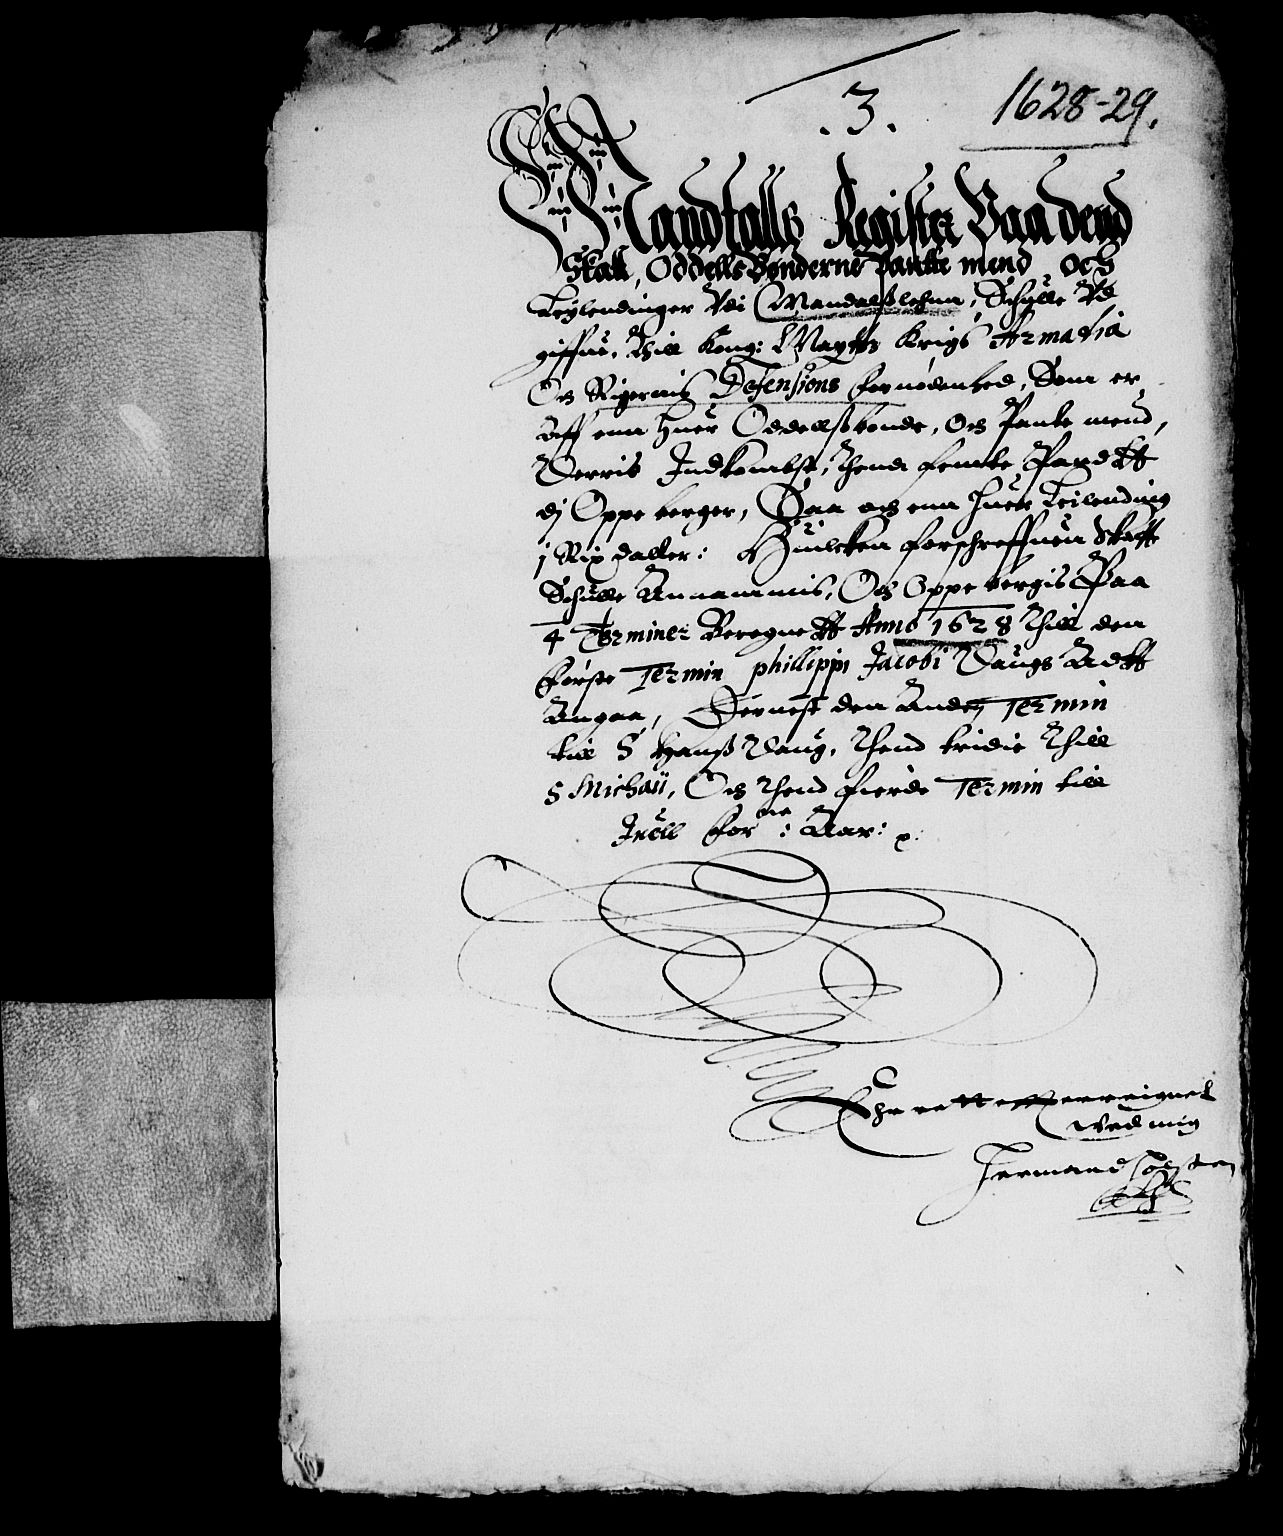 .3.
1628-29.
Mandtalls Register Paa dend
Skatt, Oddells Bønderne Pantte mend och
Leylendinger Udi Mandalsslehnn, Schulle Ud
giffue, thill Kong: Maytts Krigs Armatia
Och Rigernis Defensions fornødenhed, Som er
Aff enn huer Oddellsbonde, och Pante mend,
Derris Indkombst, thend femte Pard
dj Oppe berger, Saa och enn huer Leilending
1 Rix daller: Huilcken forschreffuen Skatt
Schulle Annammis, Och Oppe bergis Paa
4 Terminer Beregnett Anno 1628 thill den
første Termin phillippi Jacobi Daugs
Angaa, Dernest den Anden Termin
till S Hanss Daug, thend tridie thill
S Michaii, Och thend fierde Termin till
Juell for:ne Aar:
wed mig